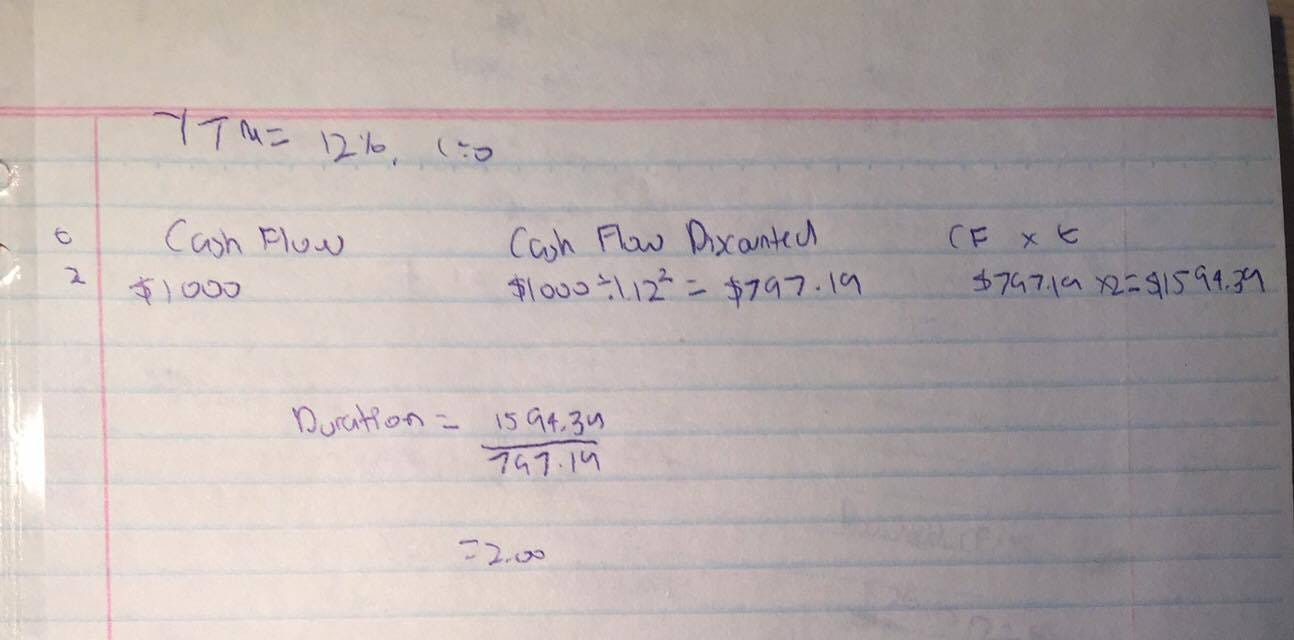 YTM= 12%, C=0
t Cash Flow Cash Flow Discounted CF x t
2 $1000 $1000÷1.12² = $797.19 $797.19 x2=$1594.39
Duration = 1594.39
797.19
=2.00